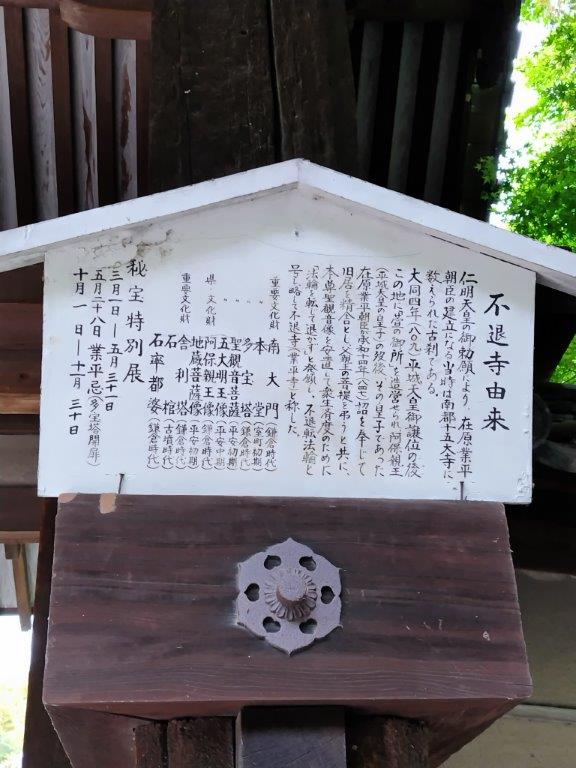 不退寺由来
仁明天皇の御勅願により、在原業平
朝臣の建立になる当時は南都十五大寺に
数えられた古刹である。
大同四年(八〇九)平城天皇御譲位の後
この地に「萱の御所」を造営せられ、阿保親王
(平城天皇の皇子)の歿後、その皇子であった
在原業平朝臣が承和十四年(八四七)詔を奉じて
旧居を精舎とし、父親王の菩提を弔うと共に、
本尊聖観音像を安置して衆生済度のために
「法輪を転じて退かず」と発願し、不退転法輪寺と
号し、略して不退寺(業平寺)と称した。
重要文化財 南大門 (鎌倉時代)
〃 本堂 (室町初期)
〃 多宝塔 (鎌倉時代)
〃 聖観音菩薩 (平安初期)
〃 五大明王像 (平安中期)
県文化財 阿保親王像 (鎌倉時代)
地蔵菩薩像 (平安初期)
重要文化財 舎利塔 (鎌倉時代)
石棺 (古墳時代)
石率都婆 (鎌倉時代)
秘宝特別展
三月一日―五月三十一日
五月二十八日 業平忌(多宝塔開扉)
十月一日―十一月三十日